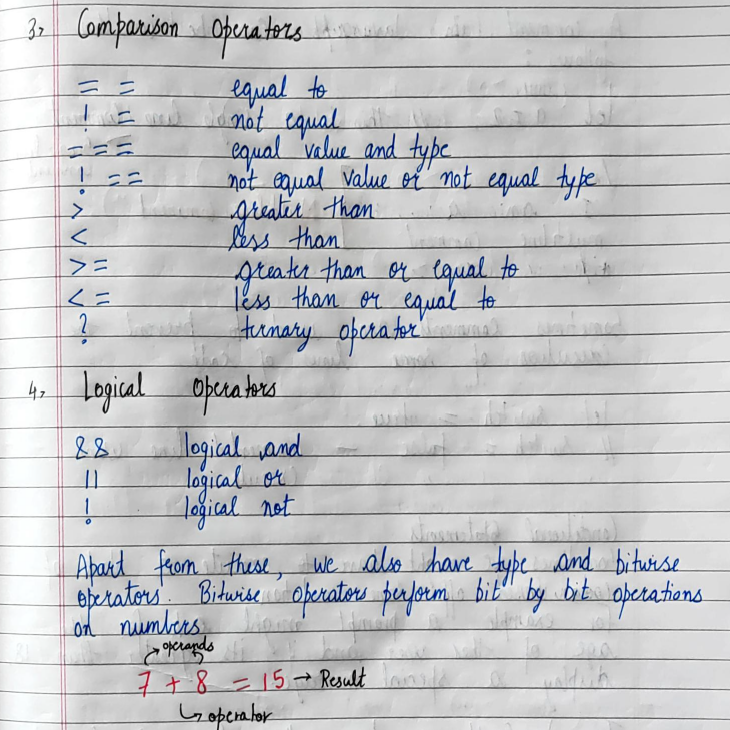 3, Comparison Operators
= = equal to
! = not equal
= = = equal value and type
! = = not equal value or not equal type
> greater than
< less than
> = greater than or equal to
< = less than or equal to
? ternary operator
4, Logical Operators
&& logical and
|| logical or
! logical not
Apart from these, we also have type and bitwise
operators. Bitwise operators perform bit by bit operations
on numbers
operands
7 + 8 = 15 → Result
operator